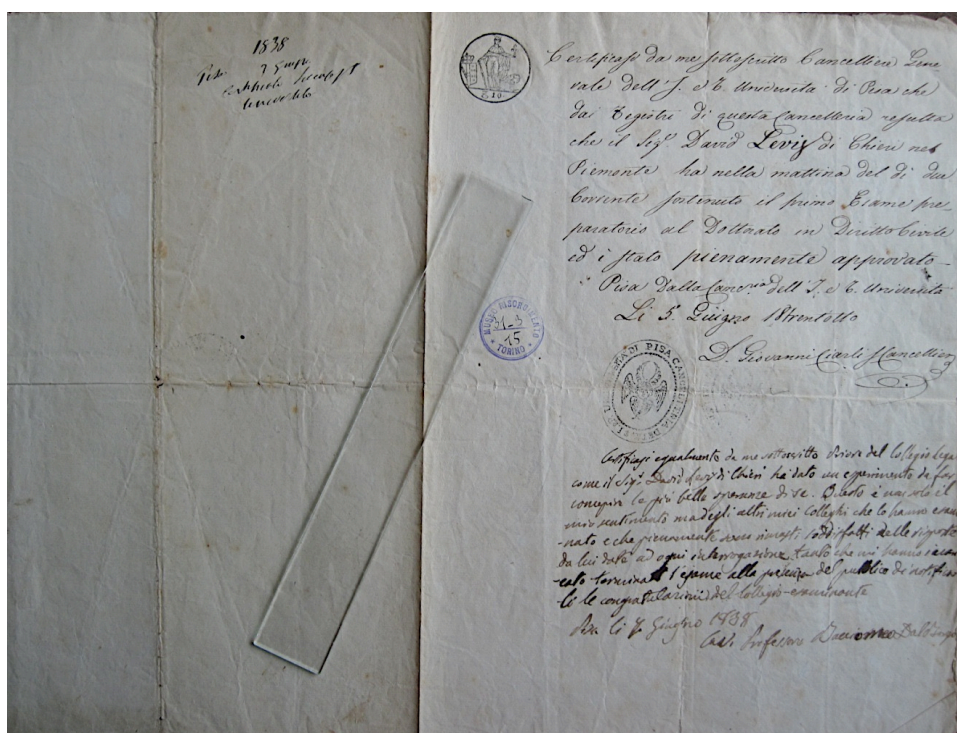 1838
Pisa 7 Giugn
Certificasi da me sottoscritto Cancelliere Gene-
rale dell' I. e R. Università di Pisa che
dai Registri di questa Cancelleria resulta
che il Sigr. David Levi di Chieri nel
Piemonte ha nella mattina del dì due
Corrente sostenuto il primo Esame pre-
paratorio al Dottorato in Diritto Civile
ed è stato pienamente approvato
Pisa Dalla Cancria dell' I. e R. Università
Li 5. Giugno 18trentotto
D. Giovanni Ciarli Cancelliere
MUSEO RISORGIMENTO
31-3
15
TORINO
DI PISA CANCELLERIA DELL
Certificasi egualmente da me sottoscritto Priore del Collegio Lega
come il Sigr. David Levi di Chieri ha dato un esperimento da far
concepire le più belle speranze di se. Questo è non solo il
mio sentimento ma degli altri miei Colleghi che lo hanno esami
-nato e che pienamente sono rimasti soddisfatti delle risposte
da lui date ad ogni interrogazione, tanto che mi hanno incari
-cato terminato l'esame alla presenza del pubblico di notificar
-li le congratulazioni del Collegio esaminante
Pisa li 7 Giugno 1838
Professore